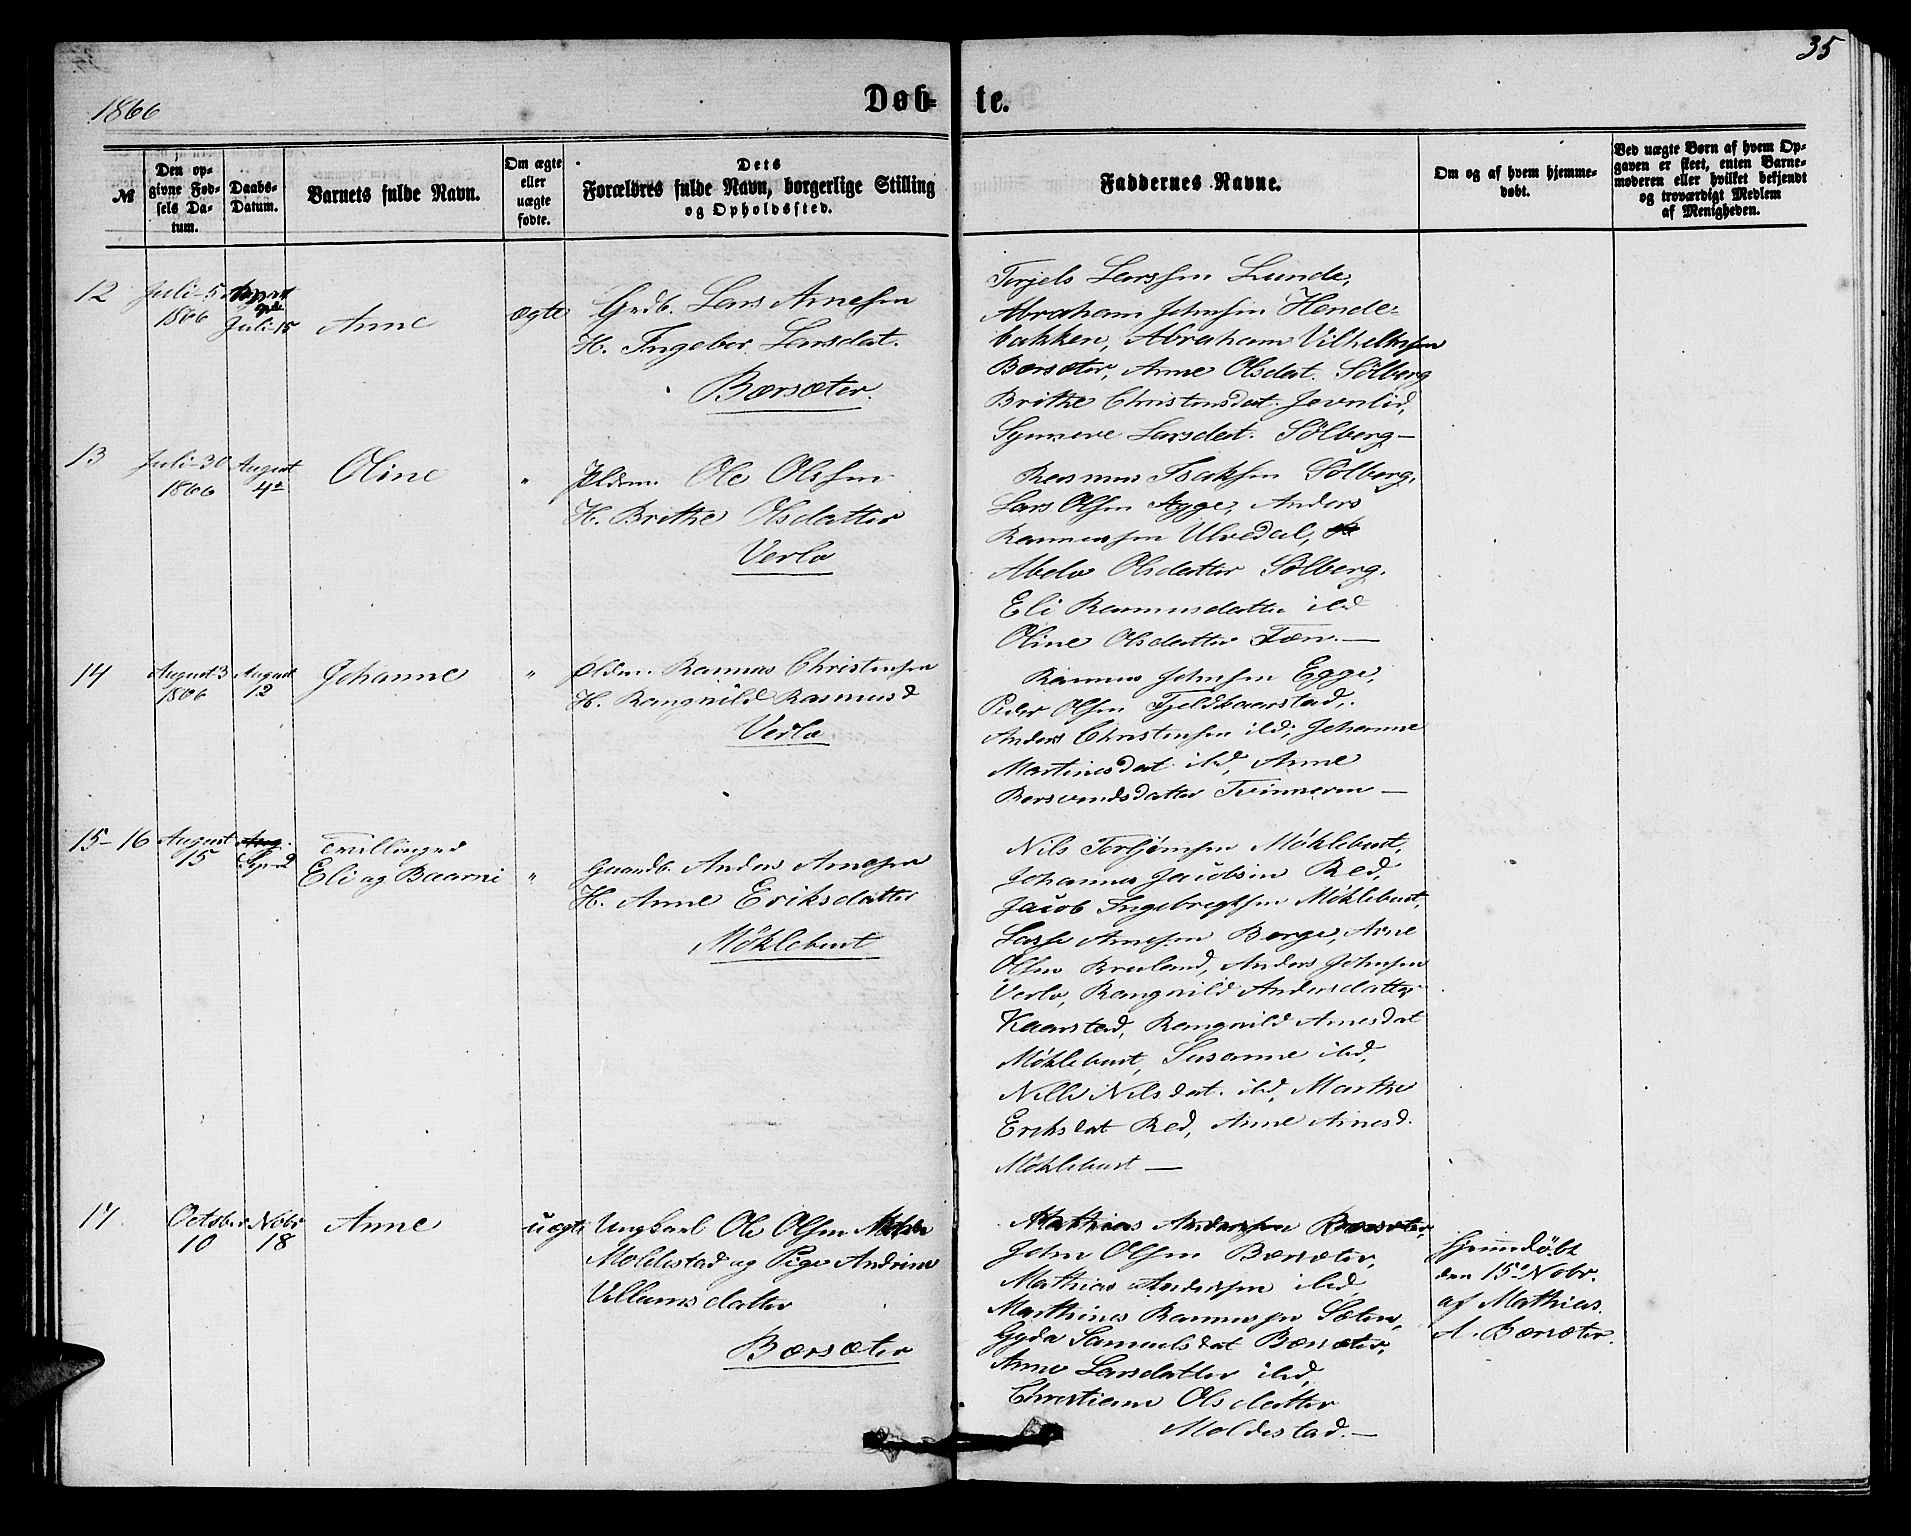 35
1866
Døb- te.
№
Den op-
givne Fød-
sels Da-
tum.
Daabs-
Datum.
Barnets fulde Navn.
Om ægte
eller
uægte
fødte.
Dets
Forældres fulde Navn, borgerlige Stilling
og Opholdssted.
Faddernes Navne.
Om og af hvem hjemme-
døbt.
Ved uægte Børn af hvem Op-
gaven er skeet, enten Barne-
moderen eller hvilket bekjendt
og troværdigt Medlem
af Menigheden.
12
Juli 5
1866
Juli 15
Anne
ægte
Grdb. Lars Arnesen
H. Ingebor Larsdat.
Børsæter.
Torjels Larssen Lunde,
Abraham Johnsen Hende-
bakken, Abraham Vilhelmsen
Børsæter, Anne Olsdat. Sölberg
Brithe Christensdat. Jevnlid,
Synneve Larsdat. Sölberg—
13
Juli 30
1866
August
4de
Oline
"
Pldsm. Ole Olssen
H. Brithe Olsdatter
Verlo
Rasmus Isaksen Sølberg,
Lars Olsen Agge, Anders
Rasmussen Ulvedal,
Abelo Olsdatter Sølberg.
Eli Rasmusdatter ibd
Oline Olsdatter Tøn.—
14
August 3
1866
August
12
Johanne
"
Pldsm. Rasmus Christensen
H. Rangnild Rasmusd
Verlo
Rasmus Johnsen Egge,
Peder Olsen Fjeldkaarstad,
Anders Christensen ibd; Johanne
Martinesdat ibd, Anne
Bersvendsdatter Tvinneren—
15-16
August
15
Aug.
Tvillinger
Eli og Baarni
"
Gaardb. Anders Arnesen
H. Anne Eriksdatter
Møklebust
Nils Torjønsen Møklebust,
Johannes Jacobsen Red,
Jacob Ingebregtsen Møklebust,
Lasse Arnesen Berge, Arne
Olsen Bruland, Anders Johnsen
Verlo, Rangnild Andersdatter
Kaarstad, Rangnild Arnesdat
Møklebust, Susanne ibd,
Nille Nilsdat. ibd, Marthe
Eriksdat Red, Anne Arnesd.
Møklebust —
17
October
10
Nobr
18
Anne
uægte
Ungkarl Ole Olsen
Moldestad og Pige Andrine
Villumsdatter
Børsæter
Mathias Andersen Børsæter,
John Olsen Børsæter,
Mathias Andersen ibd,
Marthines Rasmussen Sæten,
Gyda Samuelsdat Børsæter,
Anne Larsdatter ibd,
Christiane Olsdatter
Moldestad.—
Hjemmedøbt
den 15de Nobr.
af Mathias
A. Børsæter.